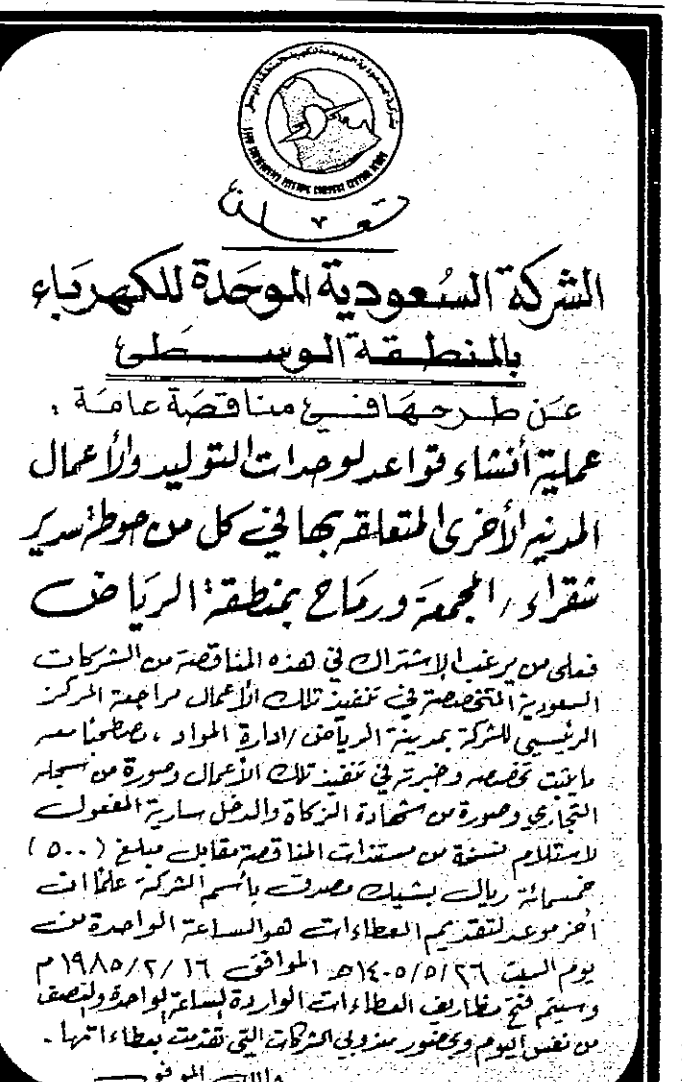 تعلن
الشركة السعودية الموحدة للكهرباء
بالمنطقة الوسطى
عن طرحها في مناقصة عامة :
عملية أنشاء قواعد لوحدات التوليد والأعمال
المدنيه الأخرى المتعلقه بها في كل من حوطة سدير
شقراء / المجمعة ورماح بمنطقة الرياض
فعلى من يرغب الاشتراك في هذه المناقصة من الشركات
السعودية المتخصصة في تنفيذ تلك الأعمال مراجعة المركز
الرئيسي للشركة بمدينة الرياض / ادارة المواد ، مصطحبا معه
مايثبت تخصصه وخبرته في تنفيذ تلك الأعمال وصورة من سجله
التجاري وصورة من شهادة الزكاة والدخل سارية المفعول
لاستلام نسخة من مستندات المناقصة مقابل مبلغ ( ٥٠٠ )
خمسمائة ريال بشيك مصدق بأسم الشركة علما ان
أخر موعد لتقديم العطاءات هو الساعة الواحدة من
يوم السبت ١٤٠٥/٥/٢٦هـ الموافق ١٩٨٥/٢/١٦ م
وسيتم فتح مظاريف العطاءات الواردة الساعة الواحدة والنصف
من نفس اليوم وبحضور مندوبي الشركات التي تقدمت بعطاءاتها .
والله الموفق